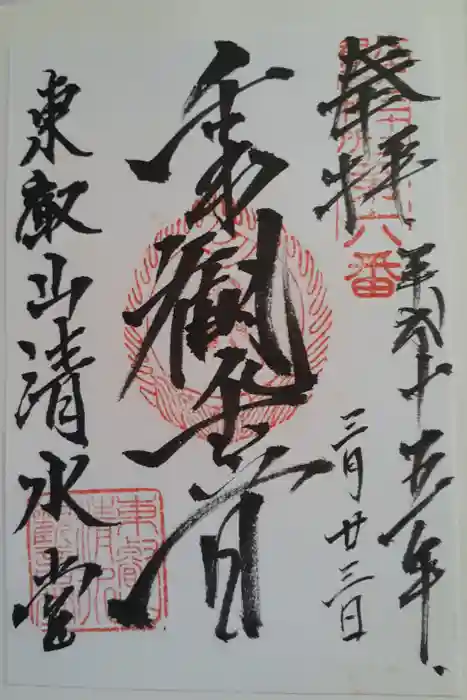 奉拝
第六番
平成弐十五年
三月廿三日
千手観世音
東叡山清水堂